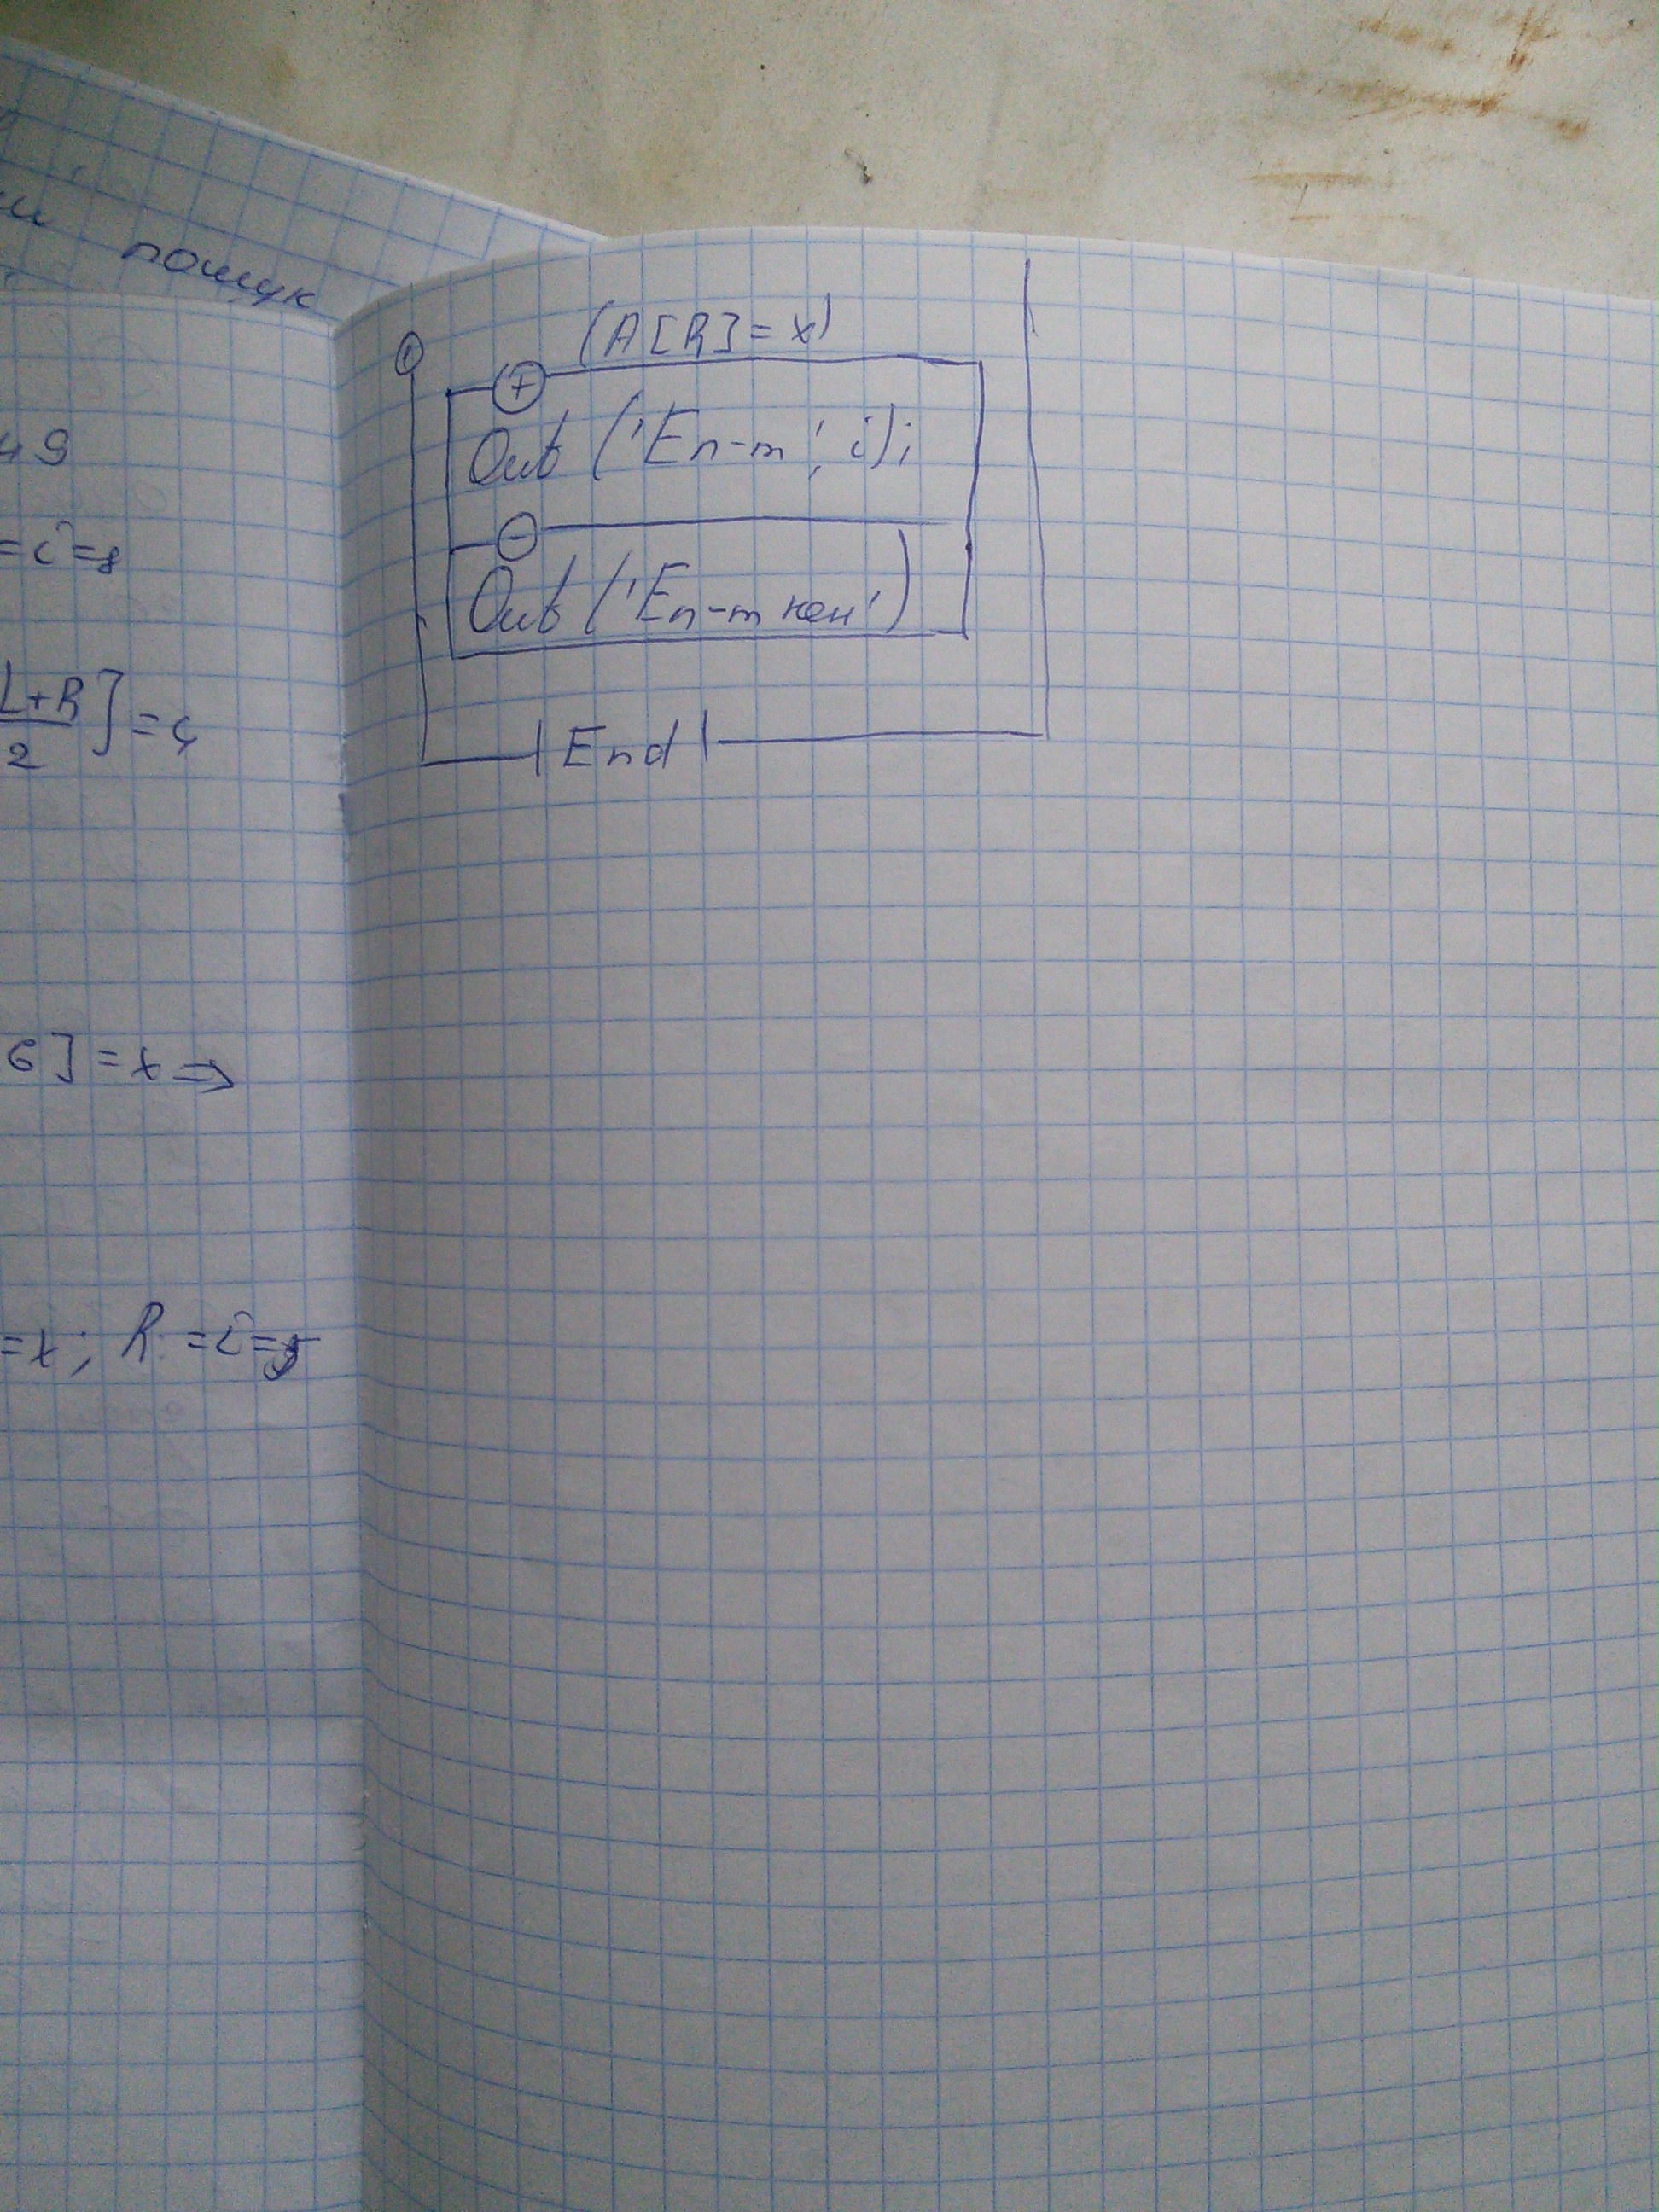 пошук
49
=i=8
[L+R]
2
=4
6]=x⇒
=x; R:=i=5
1
(A[R]=x)
+
Out ('En-m', i);
-
Out ('En-m нен')
End